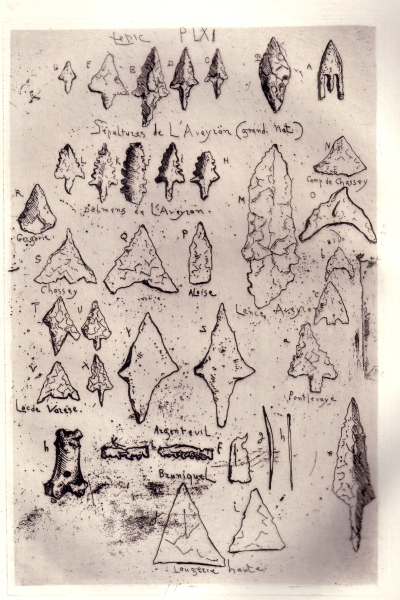 PLXI
G F E D C B A
Sépultures de L'Aveyron (grand. nat.)
L K J I H
N
Camp de Chassey
Dolmens de L'Aveyron.
M
O
R
Gergovie
S Q P
Chassey
Aloise
Lence, Aveyron
T U
V X
Lac de Varèse.
Y
Pontlevoye
Argenteuil
h
f g h
Bruniquel
Laugerie haute